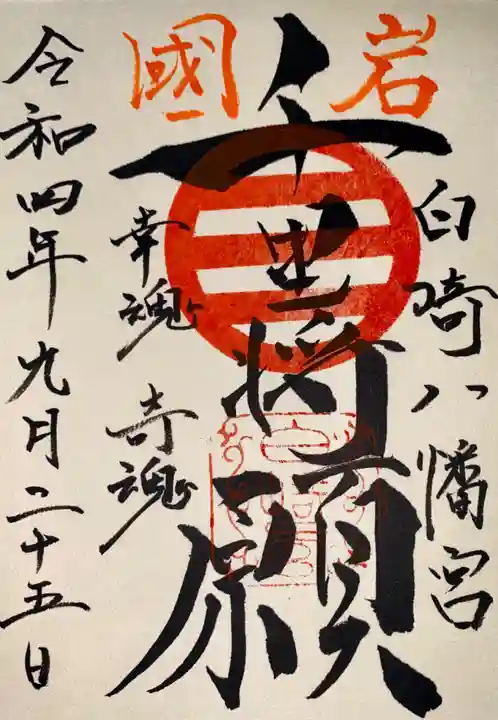 岩國
白崎八幡宮
将願
幸魂 奇魂
令和四年九月二十五日